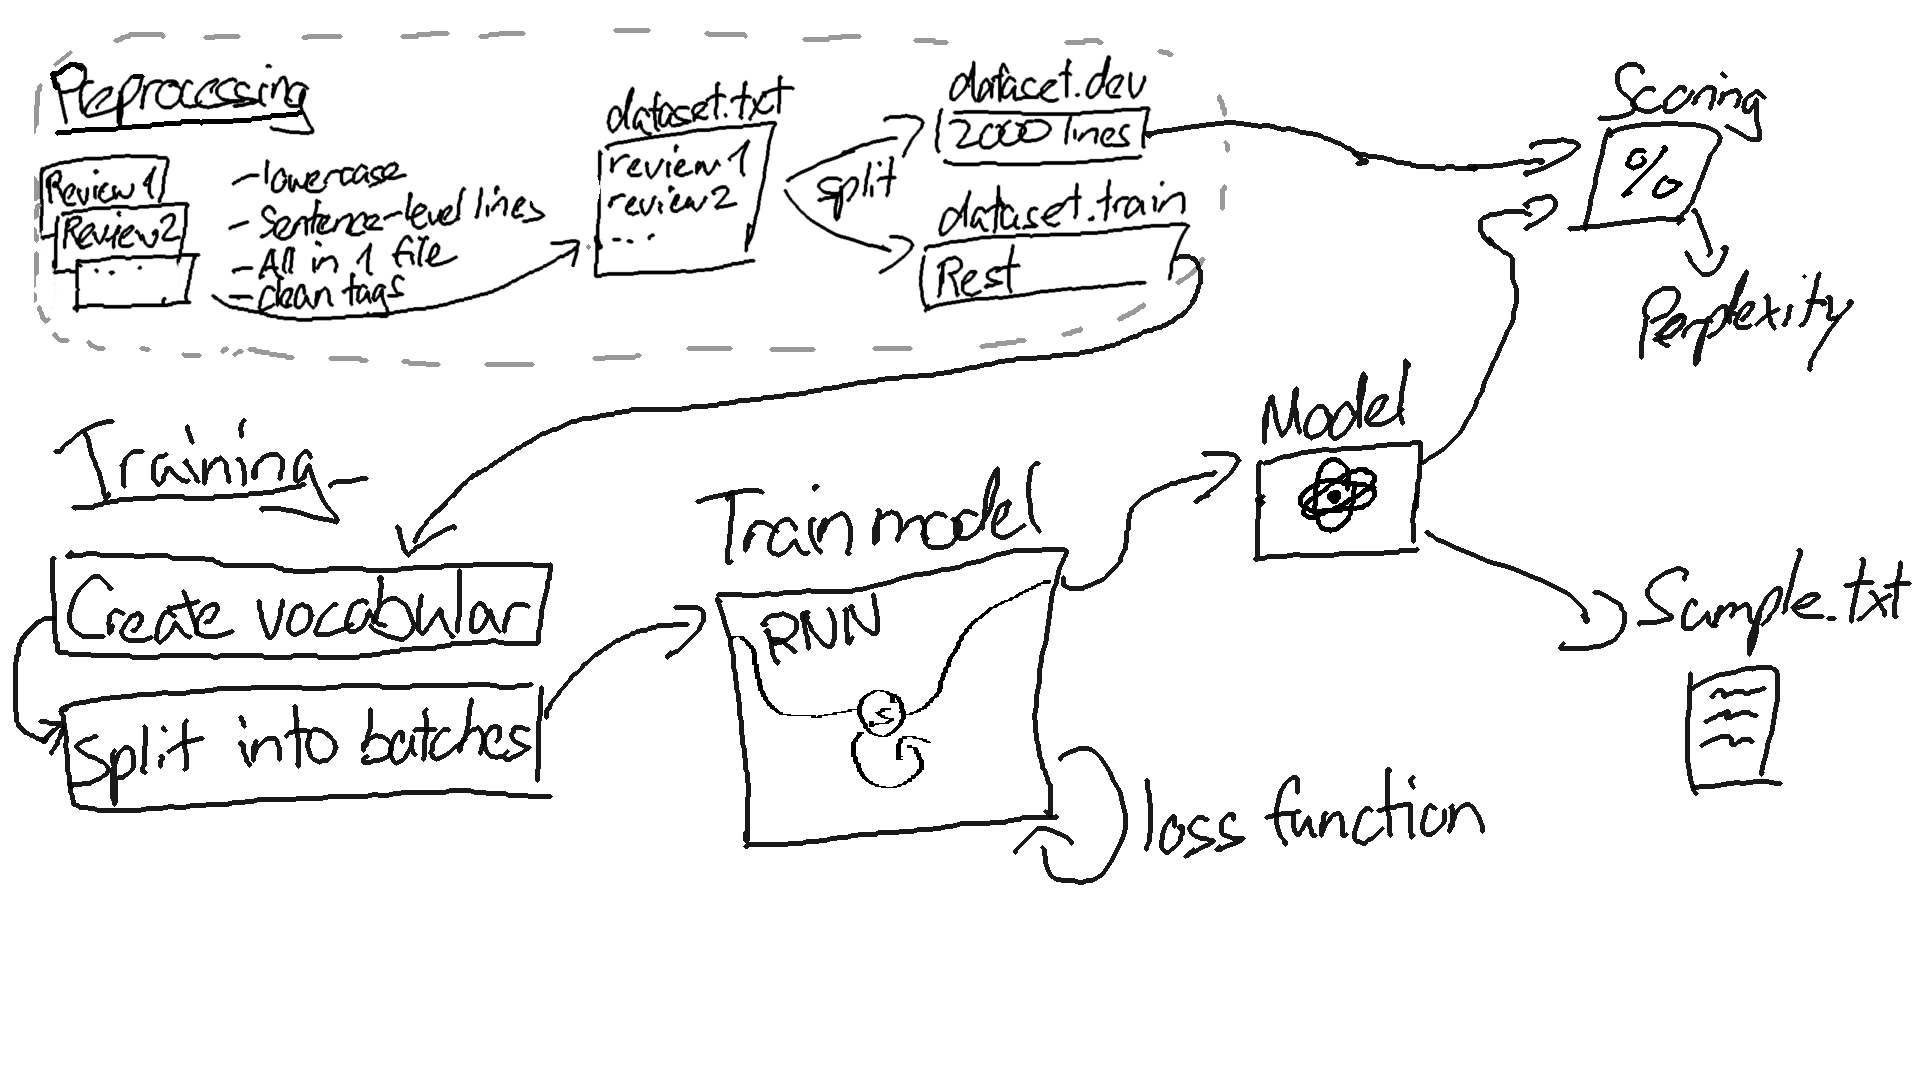 Preprocessing
Review 1
Review 2
...
- lowercase
- Sentence-level lines
- All in 1 file
- clean tags
dataset.txt
review 1
review 2
...
split
dataset.dev
2000 lines
dataset.train
Rest
Scoring
%
Perplexity
Training
Create vocabular
Split into batches
Train model
RNN
S
loss function
Model
Sample.txt